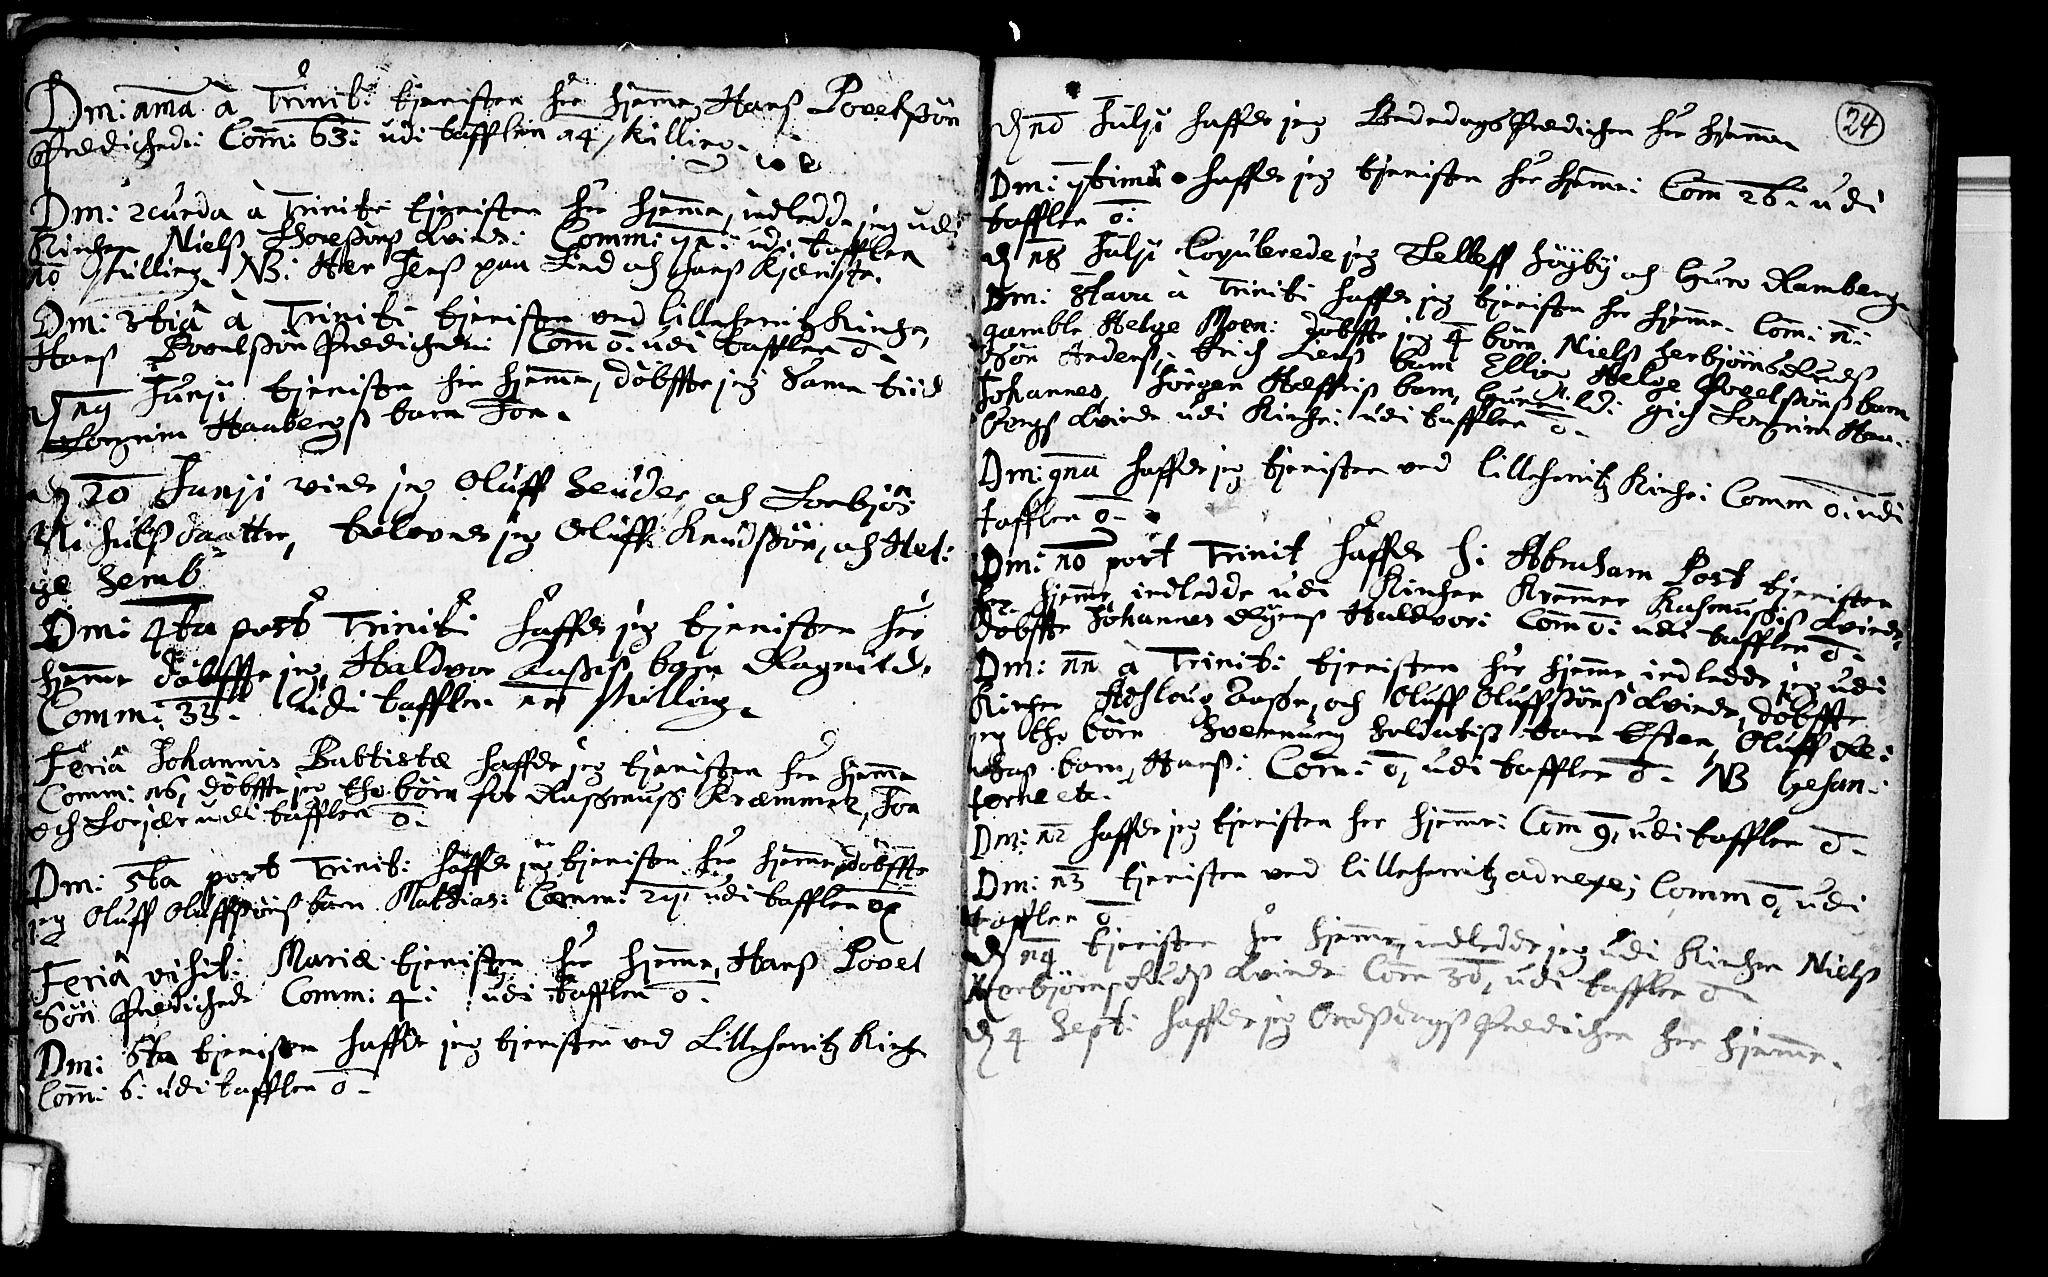 Dm: 1ma à Trinit: tjenisten her hjemme, Hans Povelsøn
Predichede: Com̄: 63: udi tafflen 14 skilling.
Dm: 2cunda à Trinit: tjenisten her hjemme, indledde jeg udi
Kirchen Niels Thoresøns Qvinde: Comm: 71: udi tafflen
10 skilling. NB: Her Jens paa Lind och hans Kjæriste.
Dm: 3tia à Trinit: tjenisten ved Lilleherritz Kirche,
Hans Povelssøn Predichede: Com̄ 0: udi tafflen 0.
d 19 Junij tjenisten her hjemme, döbffte jeg Samme tiid
Torgrim Haabergs barn Jon.
d 20 Junji viede jeg Oluff Seüder och Torbjør
Nichilsdaatter, trolovede jeg Oluff Knudssøn, och Hel:
ge Semb
Dm: 4ta post Trinit: haffde jeg tjenisten her
hjemme döbffte jeg, Haldvor barn Ragnild.
Comm: 33. udi tafflen skilling.
Feria Johannis Babtistæ haffde jeg tjenisten her hjemme
Comm: 16, döbffte jeg tho börn for Rassmuss Kræmmer, Jon
och udi tafflen 0.
Dm: 5ta post Trinit: haffde jeg tjenisten her hjemme, döbffte
jeg Oluff Oluffssøns barn Mathias: Comm: 27: udi tafflen
Feria visit: Mariæ tjenisten her hjemme, Hans Povel
Søn Predichede Comm: 4: udi tafflen 0.
Dm: 6ta tjenisten haffde jeg tjenisten ved Lilleherritz Kirche
Com̄: 6: udi tafflen 0.
24
d 10 Julji haffde jeg Bededags Predichen her hjemme
Dm: 7tima haffde jeg tjenisten her hjemme: Com̄ 26: udi
tafflen 0:
d 18 Julji Copulerede jeg Telleff Høyby och Guro Ramberg.
Dm: 8tava à Trinit: haffde jeg tjenisten her hjemme. Com̄: 1:
gamble Helge Moen: döbffte jeg 4 börn Niels Herbjørnsruds
Søn Anders, Erich Liens barn Ellin Helge Povelssøns barn
Johannes, Jörgen barn, Gunild: gich Torgrim Haa:
bergs Qvinde udi Kirche: udi tafflen 0.
Dm: 9na haffde jeg tjenisten ved Lilleherritz Kirche: Comm 0: udi
tafflen 0.
Dm: 10 post Trinit haffde H: Abraham Post tjenisten
her hjemme indledde udi Kirchen Kremmer Rasmussis Qvinde,
döbffte Johannes barn Haldvor: Com̄ 0: udi tafflen 0.
Dm: 11 à Trinit: tjenisten her hjemme indledde jeg udi
Kirchen Asloug och Oluff Oluffssøns Qvinde, döbffte
jeg tho börn Svennung Soldatis barn Esten, Oluff
barn, Hans: Com̄: 0, udi tafflen 0. NB Gesan:
terne etc.
Dm: 12 haffde jeg tjenisten her hjemme: Com̄ 9, udi tafflen 0.
Dm: 13 tjenisten ved Lilleherritz adnexe; Comm 0, udi
tafflen 0
d 19 tjenisten her hjemme, indledde jeg udi Kirchen Niels
Herbjørnsruds Qvinde Com̄ 30, udi tafflen 0
d 4 Sept: haffde jeg Onsdags Predichen her hjemme.